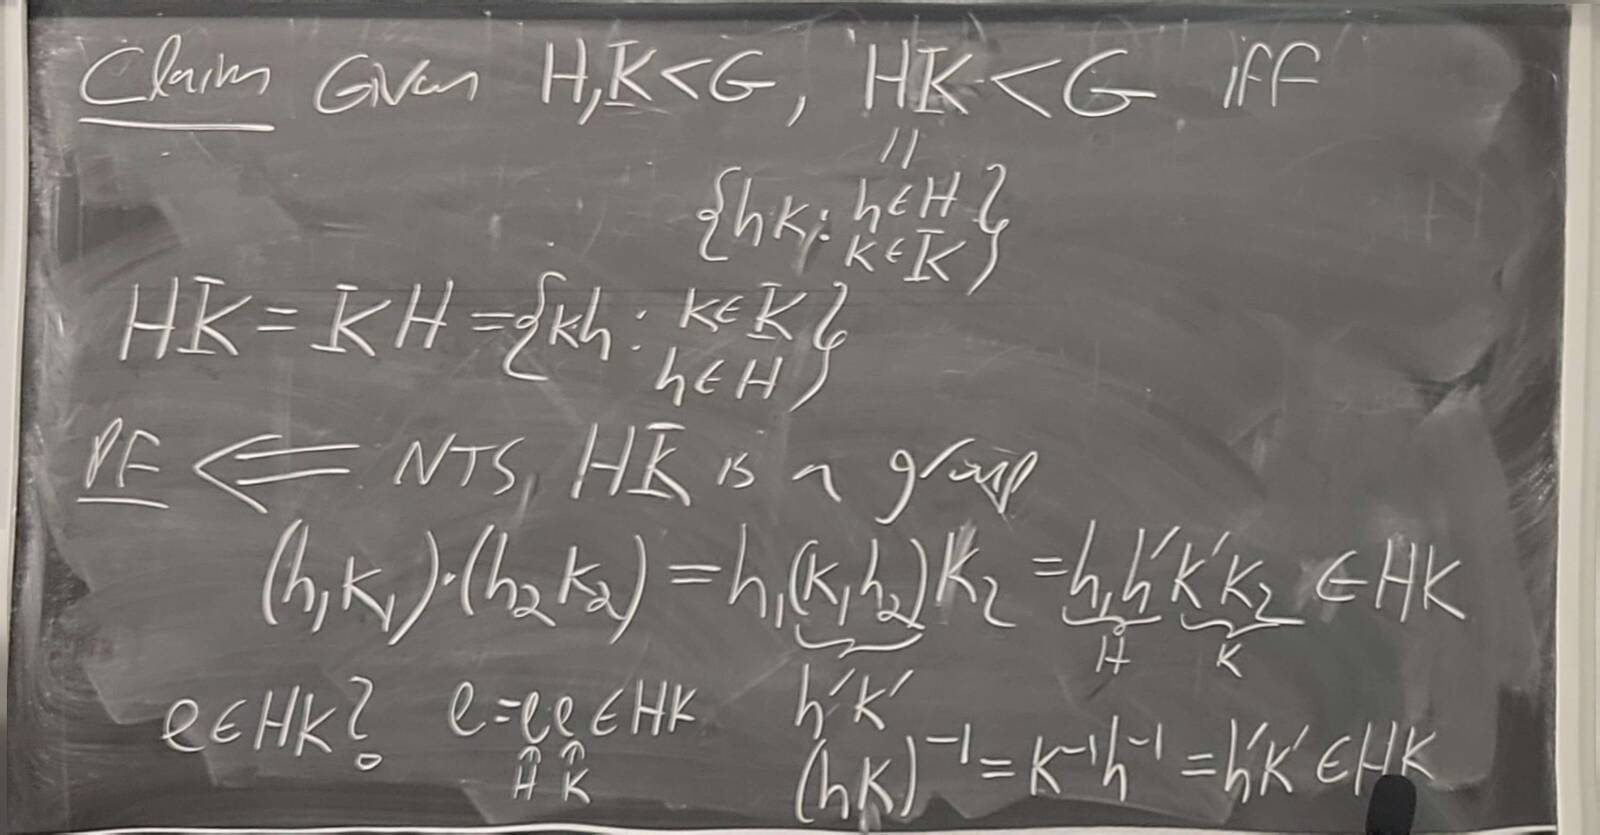 Claim Given H,K<G, HK<G iff
=
{hk: h∈H
k∈K}
HK = KH = {kh: k∈K
h∈H}
PF ⇐ NTS, HK is a group
(h₁k₁)·(h₂k₂) = h₁(k₁h₂)k₂ = h₁h'k'k₂ ∈ HK
H K
h'k'
e∈HK? e=ee∈HK
H K
(hk)⁻¹ = k⁻¹h⁻¹ = h'k' ∈ HK